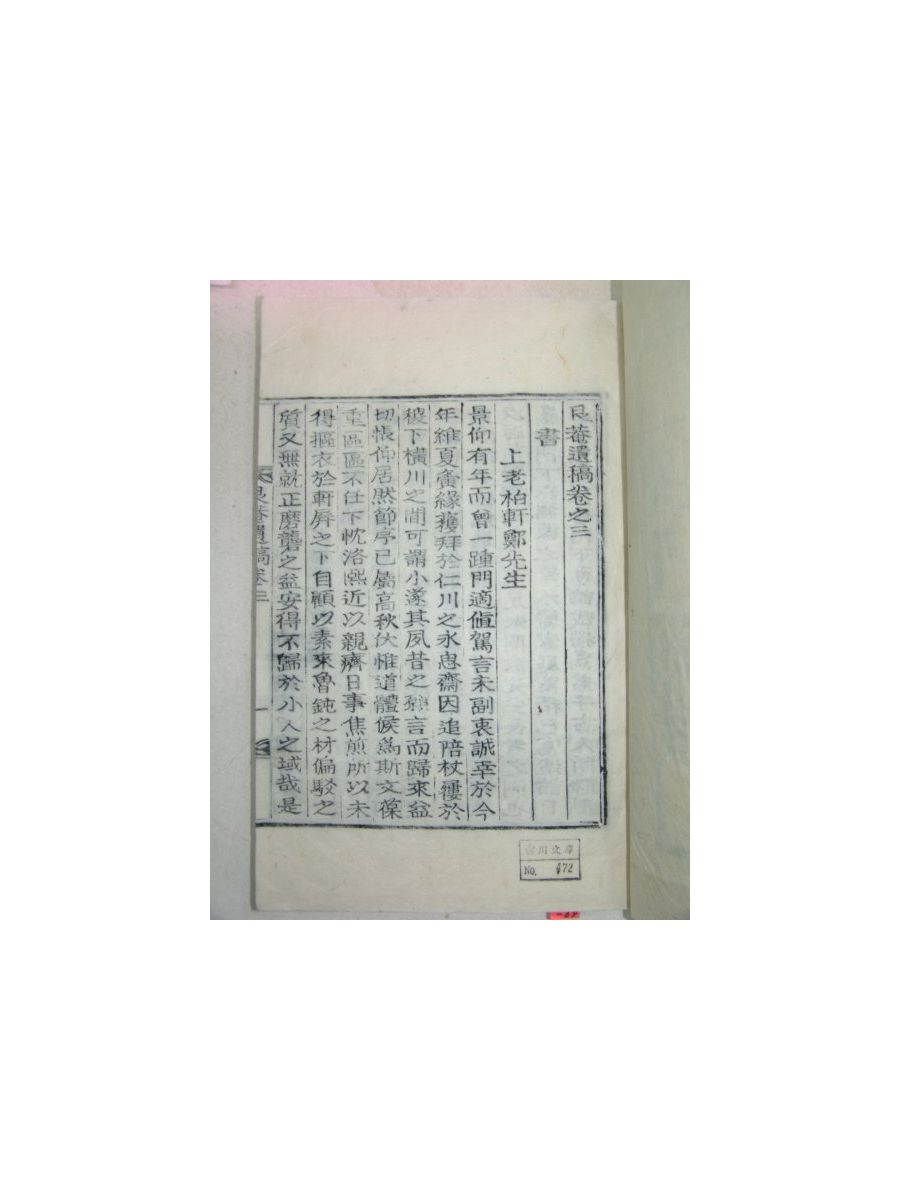 艮菴遺稿卷之三
書
上老柏軒鄭先生
景仰有年而曾一踵門適值駕言未副衷誠幸於今
年維夏夤緣獲拜於仁川之永思齋因追陪杖屨於
稷下橫川之間可謂小遂其夙昔之 言而歸來益
切悵仰居然節序已屬高秋伏惟道體候爲斯文葆
重區區不任下忱洛熙近以親癠日事焦煎所以未
得摳衣於軒屛之下自顧以素來魯鈍之材偏駁之
質又無就正磨礱之益安得不歸於小人之域哉是
艮菴遺稿卷三
一
文庫
No. 472